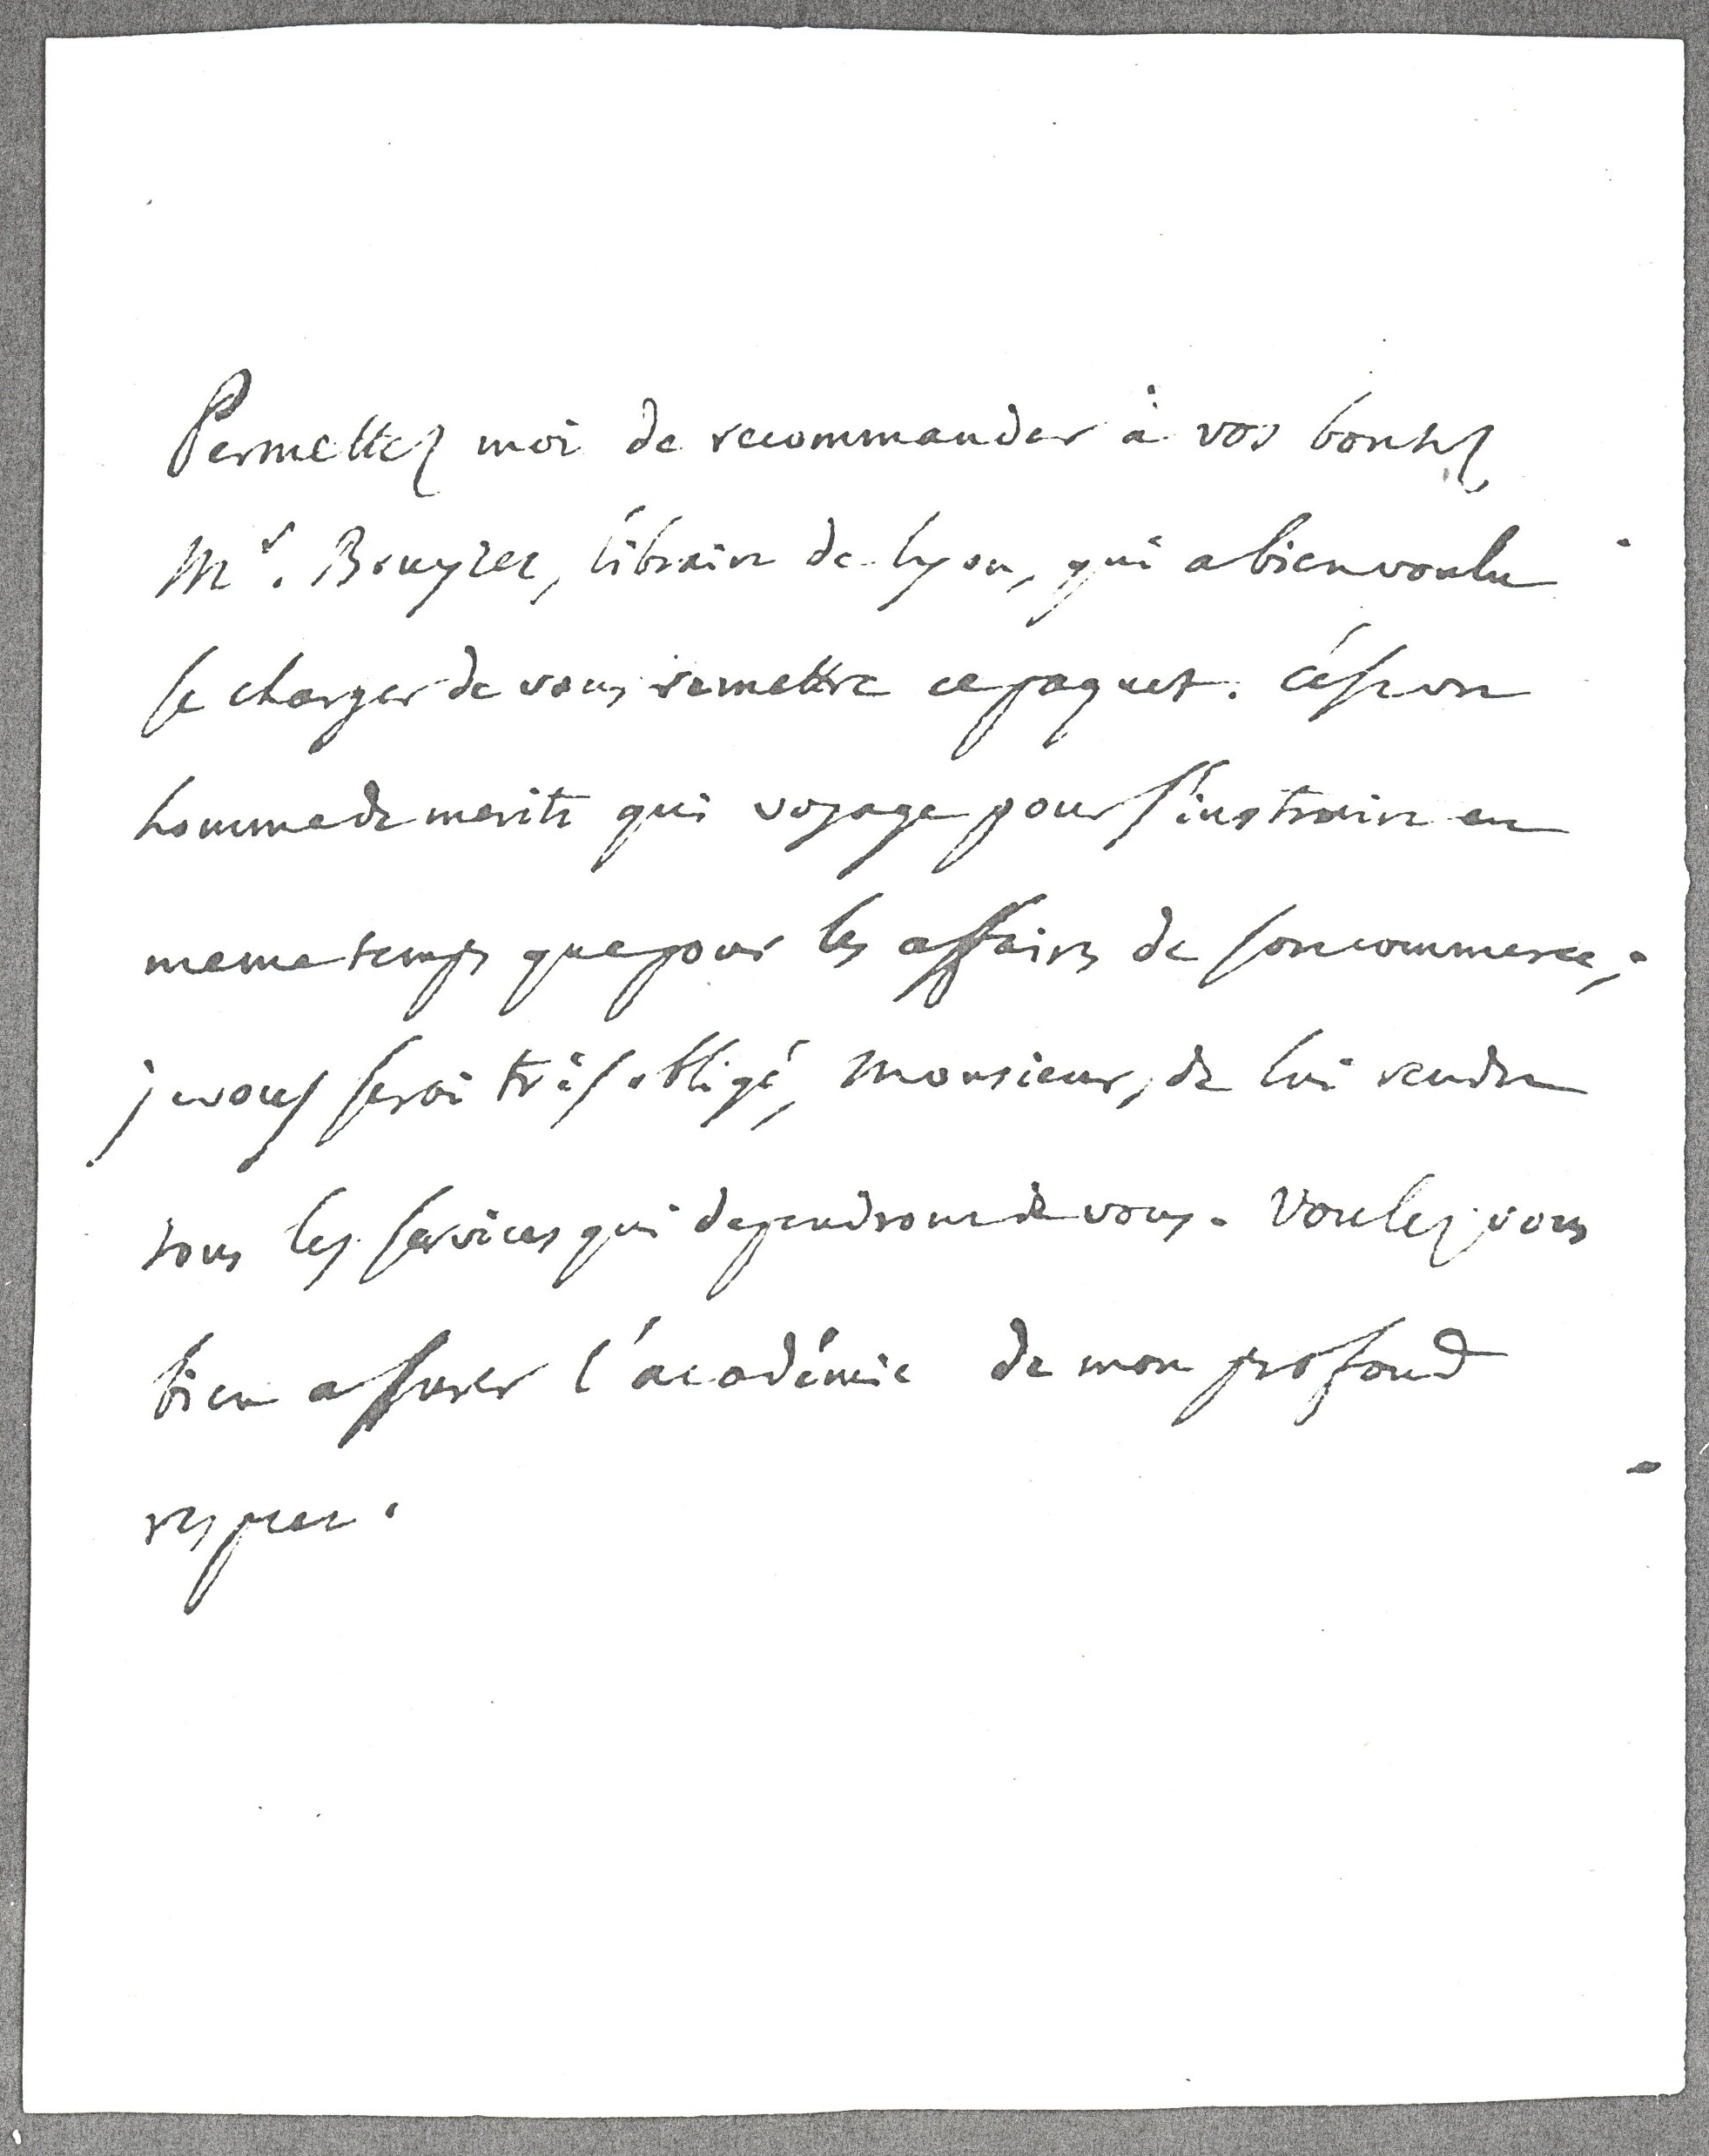 Permettez moi de recommander à vos bontez
Mr. Bruyzet, libraire de Lyon, qui a bien voulu
se charger de vous remettre ce paquet. c'est un
homme de merite qui voyage pour s'instruire en
meme temps que pour les affaires de son commerce;
je vous serai très obligé, Monsieur, de lui rendre
tous les services qui dependront de vous. Voulez vous
bien assurer l'académie de mon profond
respect.